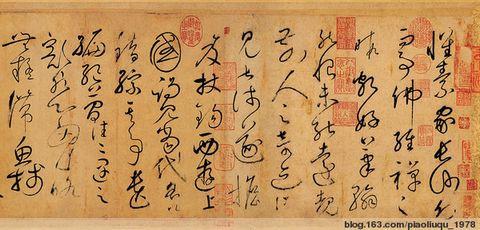 懷素家長沙幼而
事佛經禪之
暇頗好筆翰
然恨未能遠覩
前人之奇迹所
見甚淺遂擔
笈杖錫西遊上
國謁見當代名公
錯綜其事遺
編絕簡往往遇之
豁然心胸略
無疑滯魚牋
blog.163.com/piaoliuqu_1978